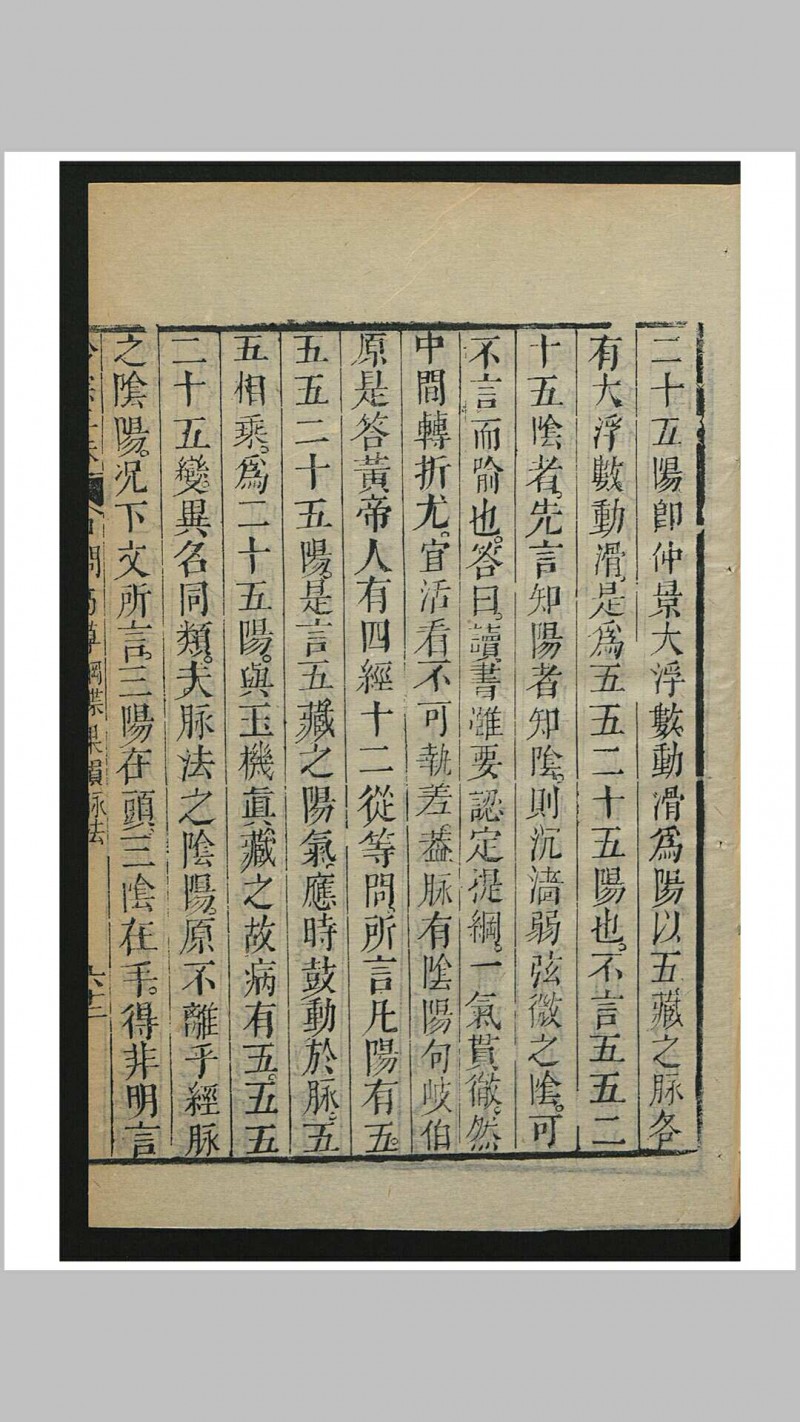 二十五陽卽仲景大浮數動滑爲陽以五藏之脉各
有大浮數動滑是爲五五二十五陽也不言五五二
十五陰者先言知陽者知陰則沉濇弱弦微之陰可
不言而喻也答曰讀書雖要認定提綱一氣貫徹然
中間轉折尤宜活看不可執差葢脉有陰陽句岐伯
原是答黃帝人有四經十二從等問所言凡陽有五
五五二十五陽是言五藏之陽氣應時鼓動於脉五
五相乘爲二十五陽與玉機眞藏之故病有五五五
二十五變異名同類夫脉法之陰陽原不離乎經脉
之陰陽况下文所言三陽在頭三陰在手得非明言
脉法